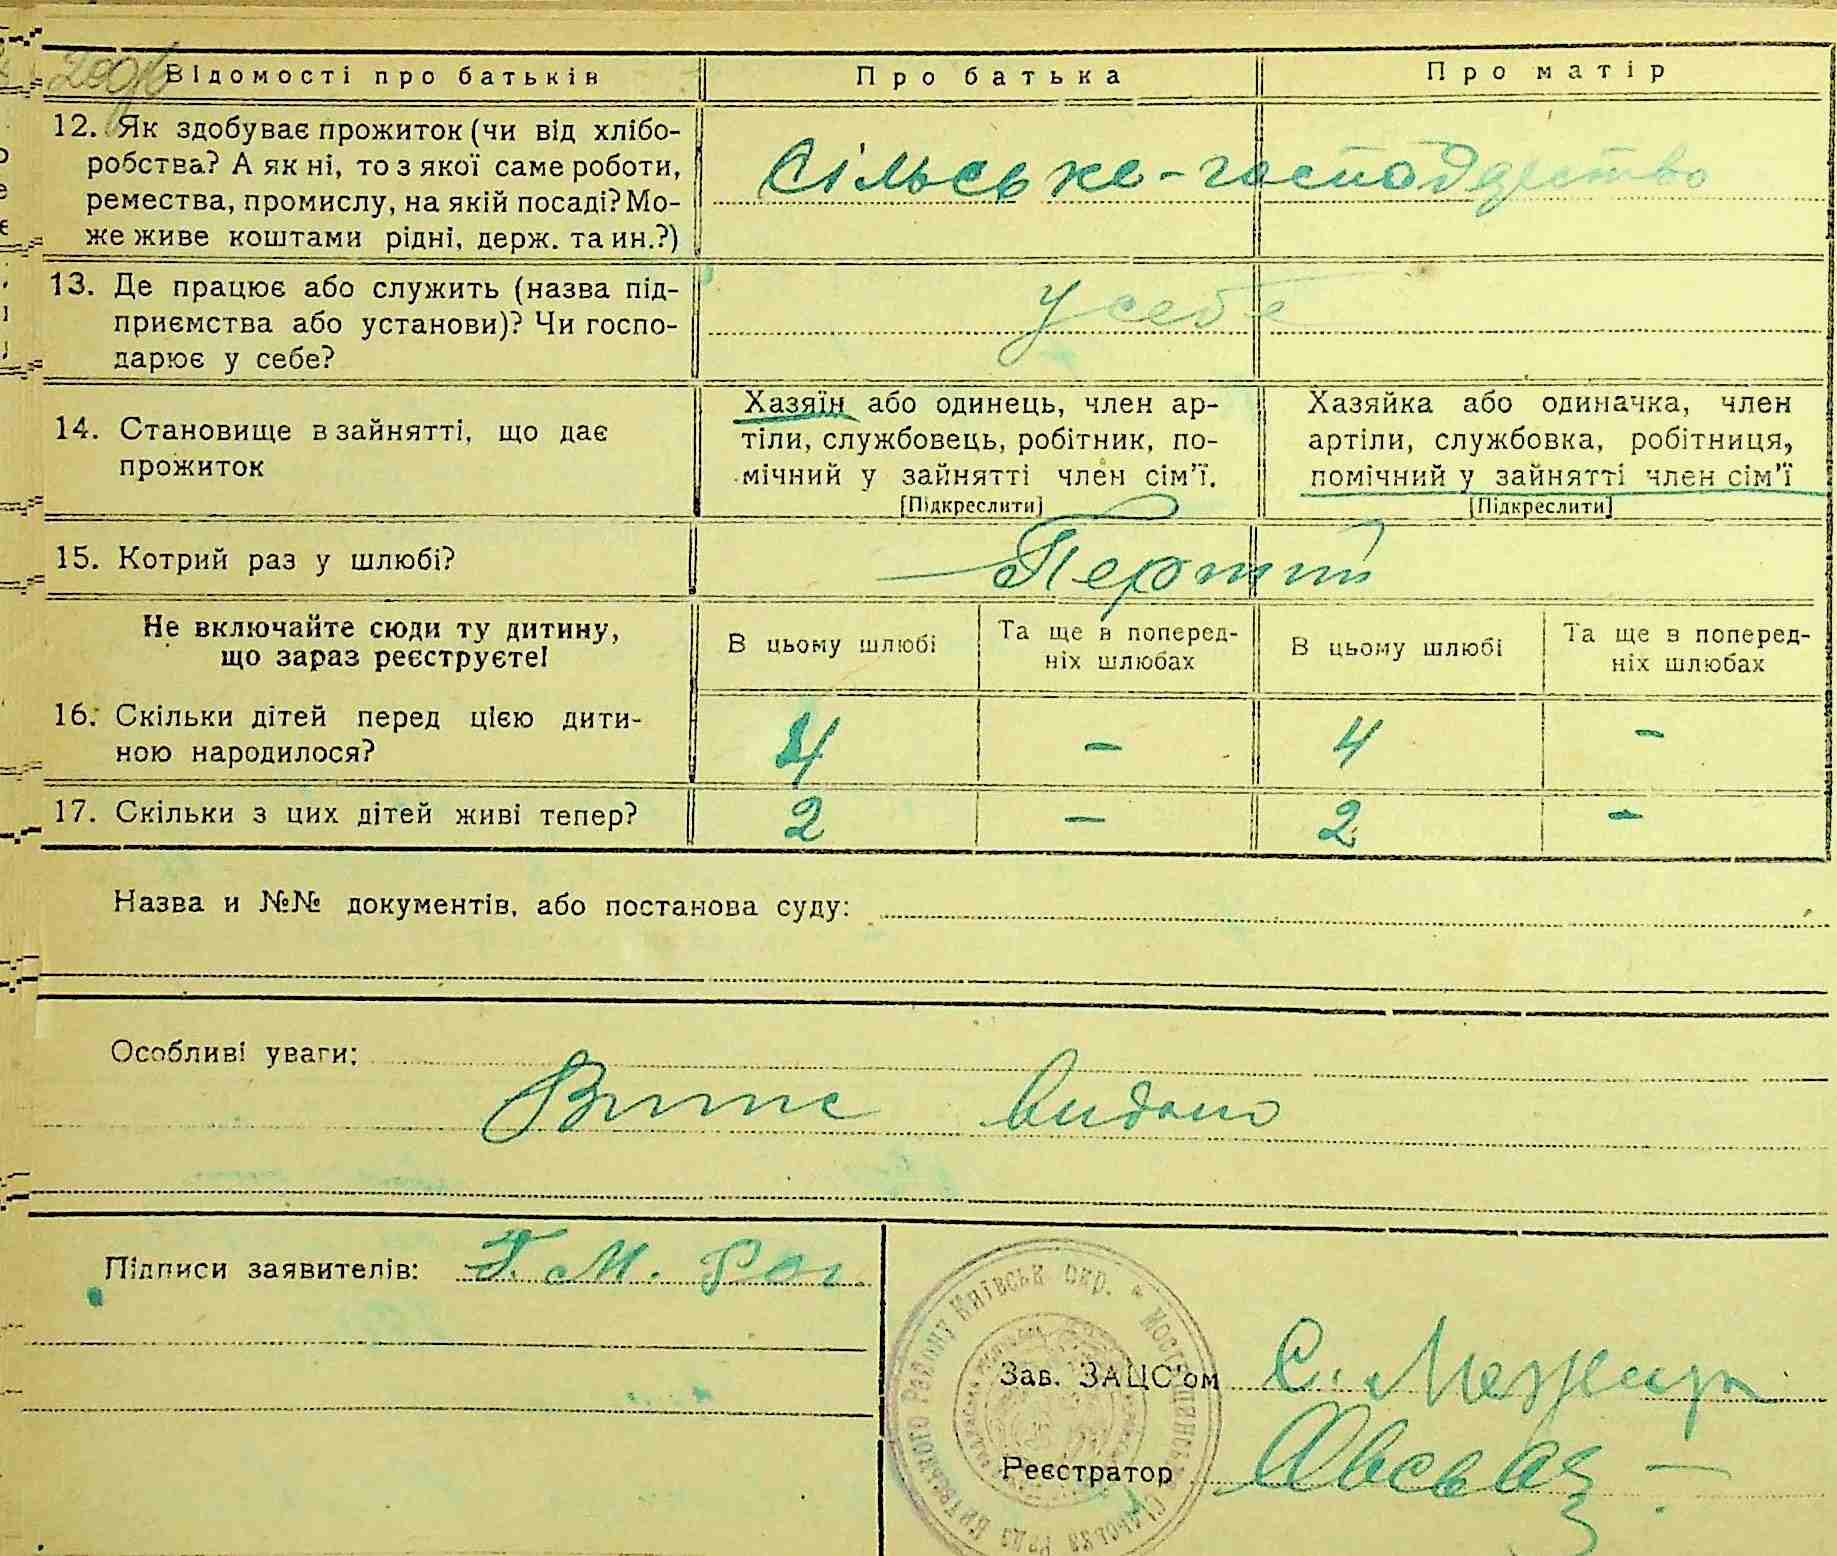 Відомості про батьків Про батька Про матір
12. Як здобуває прожиток (чи від хлібо-
робства? А як ні, то з якої саме роботи,
ремества, промислу, на якій посаді? Мо-
же живе коштами рідні, держ. та ин.?)
Сільське-господарство
13. Де працює або служить (назва під-
приємства або установи)? Чи госпо-
дарює у себе?
у себе
14. Становище в зайнятті, що дає
прожиток
Хазяїн або одинець, член ар-
тіли, службовець, робітник, по-
мічний у зайнятті член сім'ї.
[Підкреслити]
Хазяйка або одиначка, член
артіли, службовка, робітниця,
помічний у зайнятті член сім'ї
[Підкреслити]
15. Котрий раз у шлюбі? Перший
Не включайте сюди ту дитину,
що зараз реєструєте!
В цьому шлюбі
Та ще в поперед-
ніх шлюбах
В цьому шлюбі
Та ще в поперед-
ніх шлюбах
16. Скільки дітей перед цією дити-
ною народилося?
4 - 4 -
17. Скільки з цих дітей живі тепер? 2 - 2 -
Назва и №№ документів, або постанова суду:
Особливі уваги:
Витяг видано
Підписи заявителів:
Зав. ЗАЦС'ом
Реєстратор
Київськ окр.